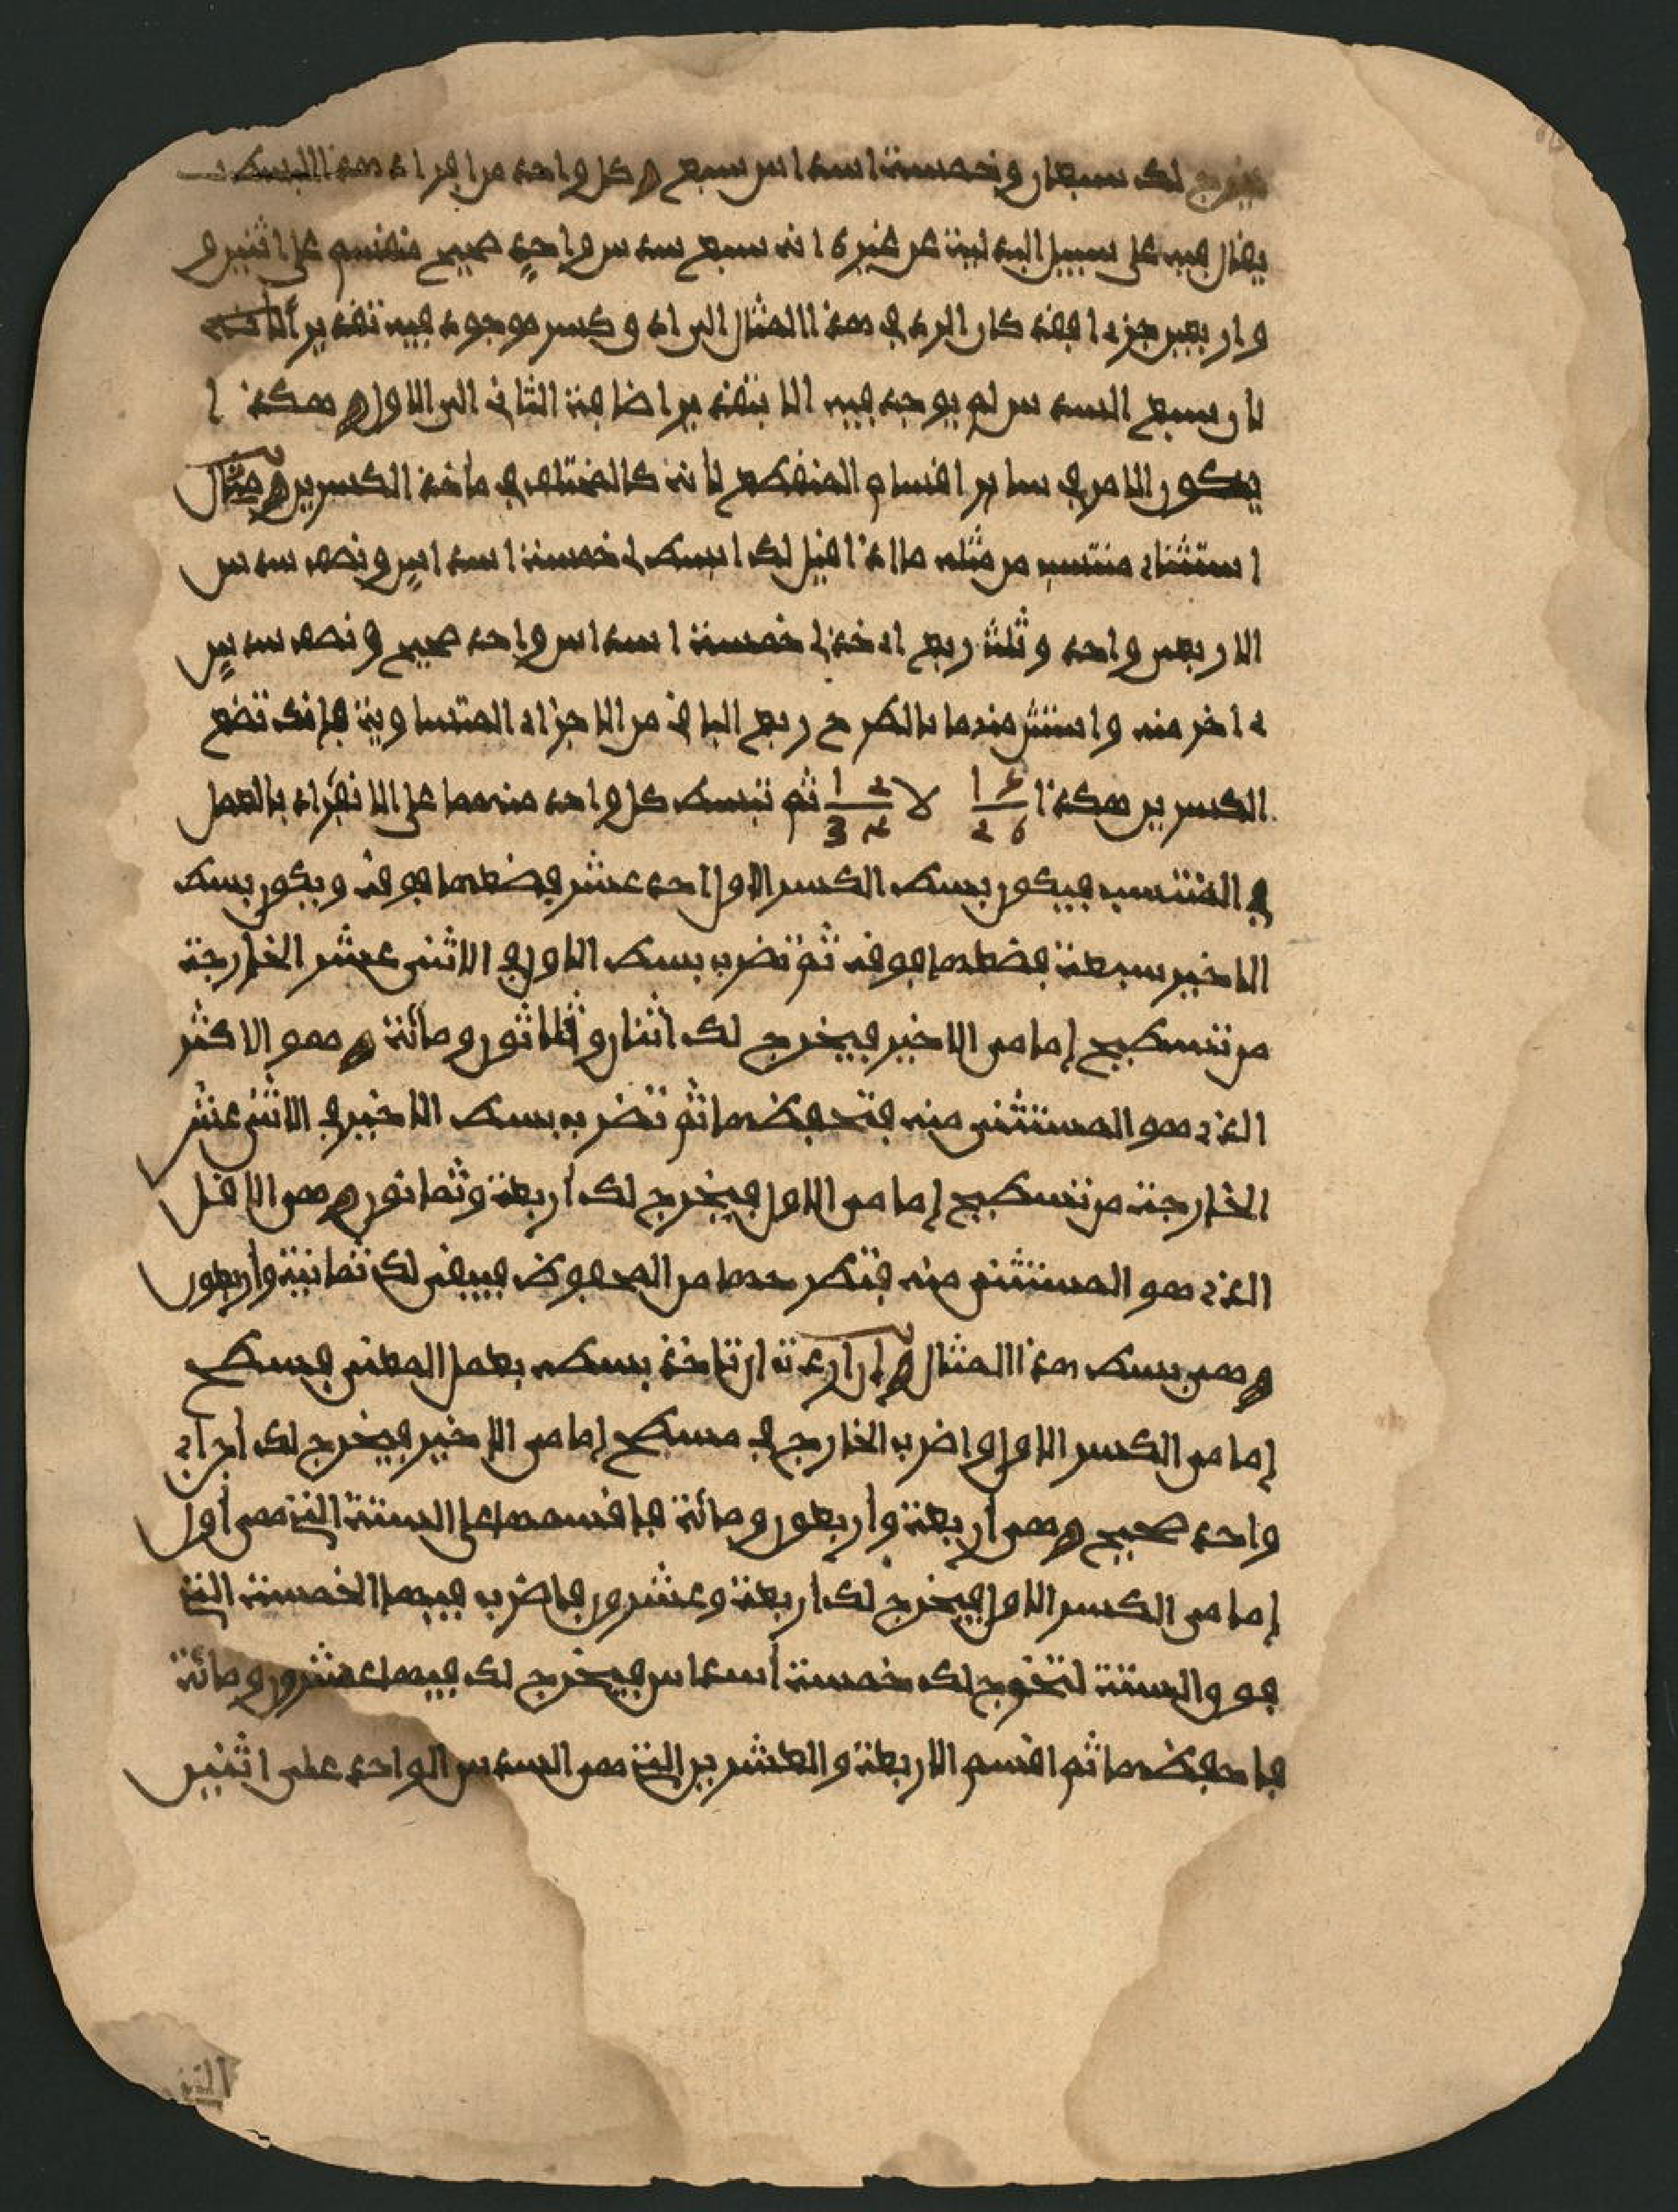 فيخرج لك سبعان وخمسة اسداس سبع وكل واحد من افراد هذا البسط
يقال فيه على سبيل البدلية عن غيره انه سبع سدس واحد صحيح منقسم على اثنين و
واربعين جزءا فقد كان الرد في هذا المثال الى اد وكسر موجود فيه تقديرا لتا
لان سبع السدس لم يوجد فيه الا بتقدير اضافة الثاني الى الاول وهكذا
يكون الامر في ساير اقسام المنقطع لانه كالمختلف في مأخذ الكسرين ومثال
استثناء منتسب من مثله ما اذا قيل لك ابسط لي خمسة اسداس ونصف سدس
الا ربعى واحد وثلث ربع اي خذ لي خمسة اسداس واحد صحيح ونصف سدس
ءاخر منه واستثن منهما بالطرح ربع الباقي من الاجزاء المتساوية فإنك تضع
الكسرين هكذا 1 5 / 2 6 لا 1 2 / 3 4 ثم تبسط كل واحد منهما على الانفراد بالعمل
في المنتسب فيكون بسط الكسر الاول احد عشر فضعها فوقه ويكون بسط
الاخير سبعة فضعها فوقه ثم تضرب بسط الاول في الاثنى عشر الخارجة
من تسطيح إمامي الاخير فيخرج لك اثنان وثلاثون ومائة وهو الاكثر
الذي هو المستثنى منه فتحفظها ثم تضرب بسط الاخير في الاثنى عشر
الخارجة من تسطيح إمامي الاول فيخرج لك أربعة وثمانون وهي الاقل
الذي هو المستثنى منه فتطرحها من المحفوظ فيبقى لك ثمانية وأربعون
وهي بسط هذا المثال وإن اردت ان تاخذ بسطه بعمل المعنى فسطح
إمامي الكسر الاول واضرب الخارج في مسطح إمامي الاخير فيخرج لك أجزاء
واحد صحيح وهي أربعة وأربعون ومائة فاقسمها على الستة التي هي أول
إمامي الكسر الاول فيخرج لك أربعة وعشرون فاضرب فيها الخمسة التي
فوق الستة لتخرج لك خمسة أسداس فيخرج لك فيها عشرون ومائة
فاحفظها ثم اقسم الاربعة والعشرين التي هي السدس الواحد على اثنين